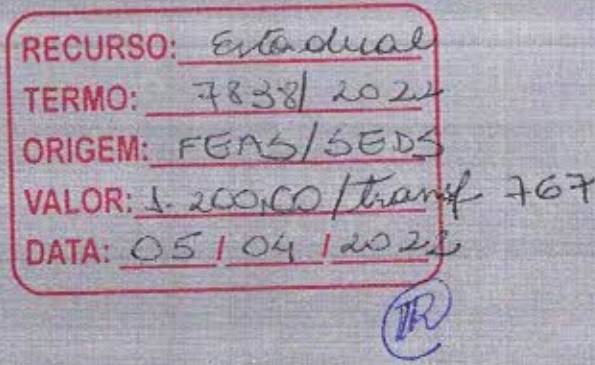 RECURSO: Estadual
TERMO: 7838/2022
ORIGEM: FEAS/SEDS
VALOR: 1.200,00/transf 767
DATA: 05/04/2022
IR